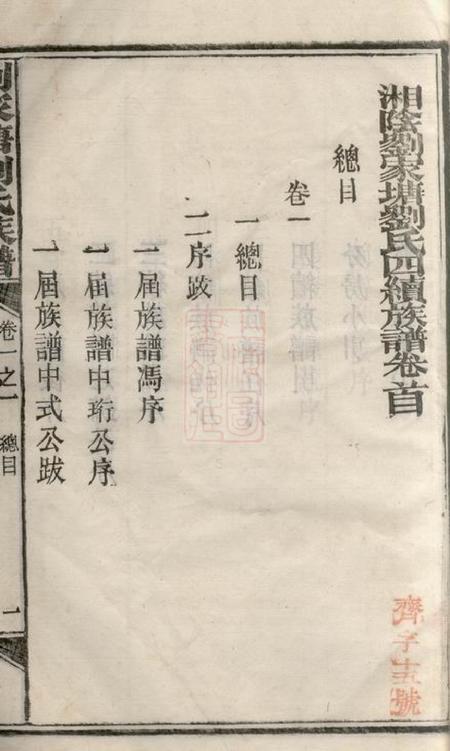 湘陰劉家塘劉氏四續族譜卷首
總目
卷一
一總目
二序跋
一屆族譜馮序
一屆族譜中珩公序
一屆族譜中式公跋
劉家塘劉氏族譜
卷一之一
總目
一
齊字十五號